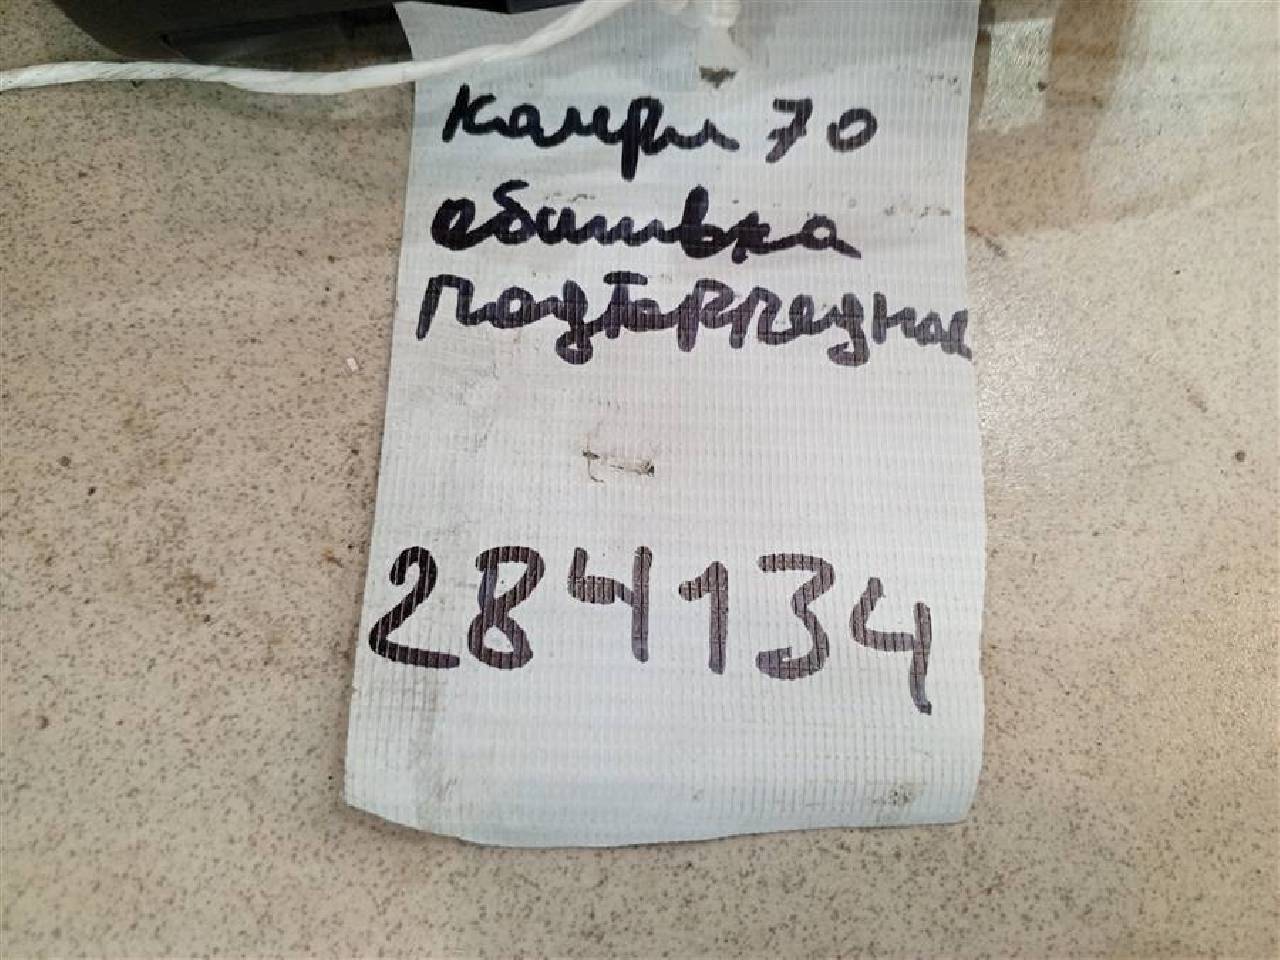 Камри 70
обшивка
Подторпедная
284134